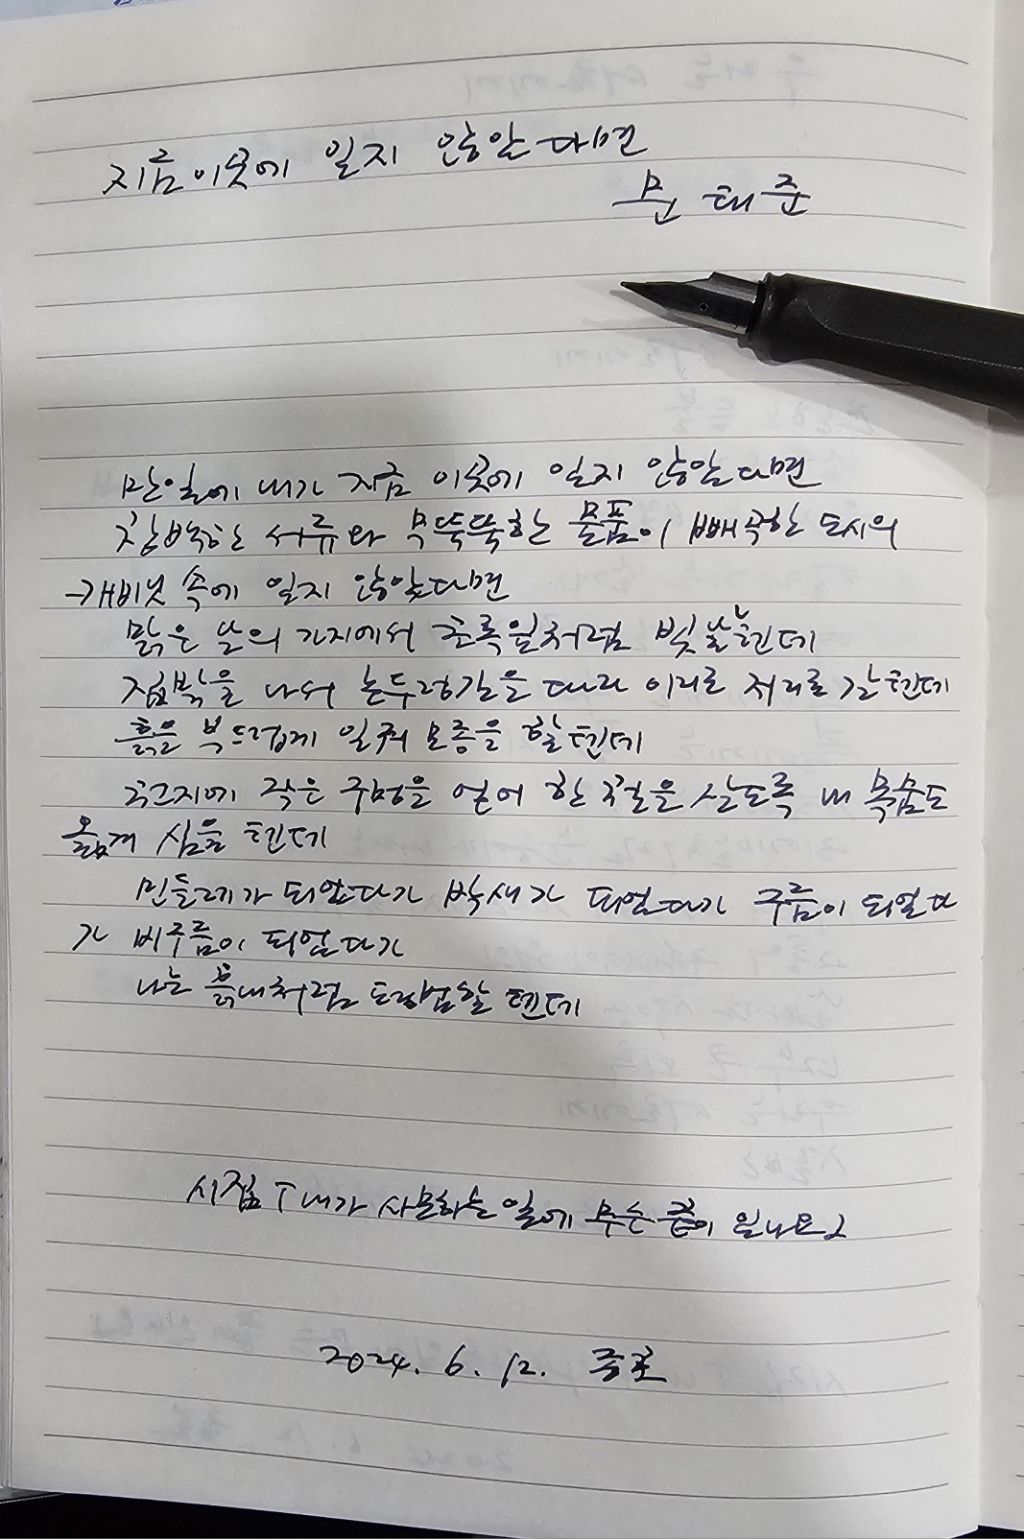 지금 이곳에 있지 않았다면
문태준
만일에 내가 지금 이곳에 있지 않았다면
창백한 서류와 무뚝뚝한 물품이 빼곡한 도시의
캐비닛 속에 있지 않았다면
맑은 날의 가지에서 초록잎처럼 빛날 텐데
집 밖을 나서 논두렁길을 따라 이리로 저리로 갈 텐데
흙을 부드럽게 일궈 모종을 할 텐데
천지에 작은 구멍을 얻어 한 철을 살도록 내 목숨도
옮겨 심을 텐데
민들레가 되었다가 박새가 되었다가 구름이 되었다
가 비구름이 되었다가
나는 흙내처럼 평범할 텐데
시집 「내가 사모하는 일에 무슨 끝이 있나요」
2024. 6. 12.